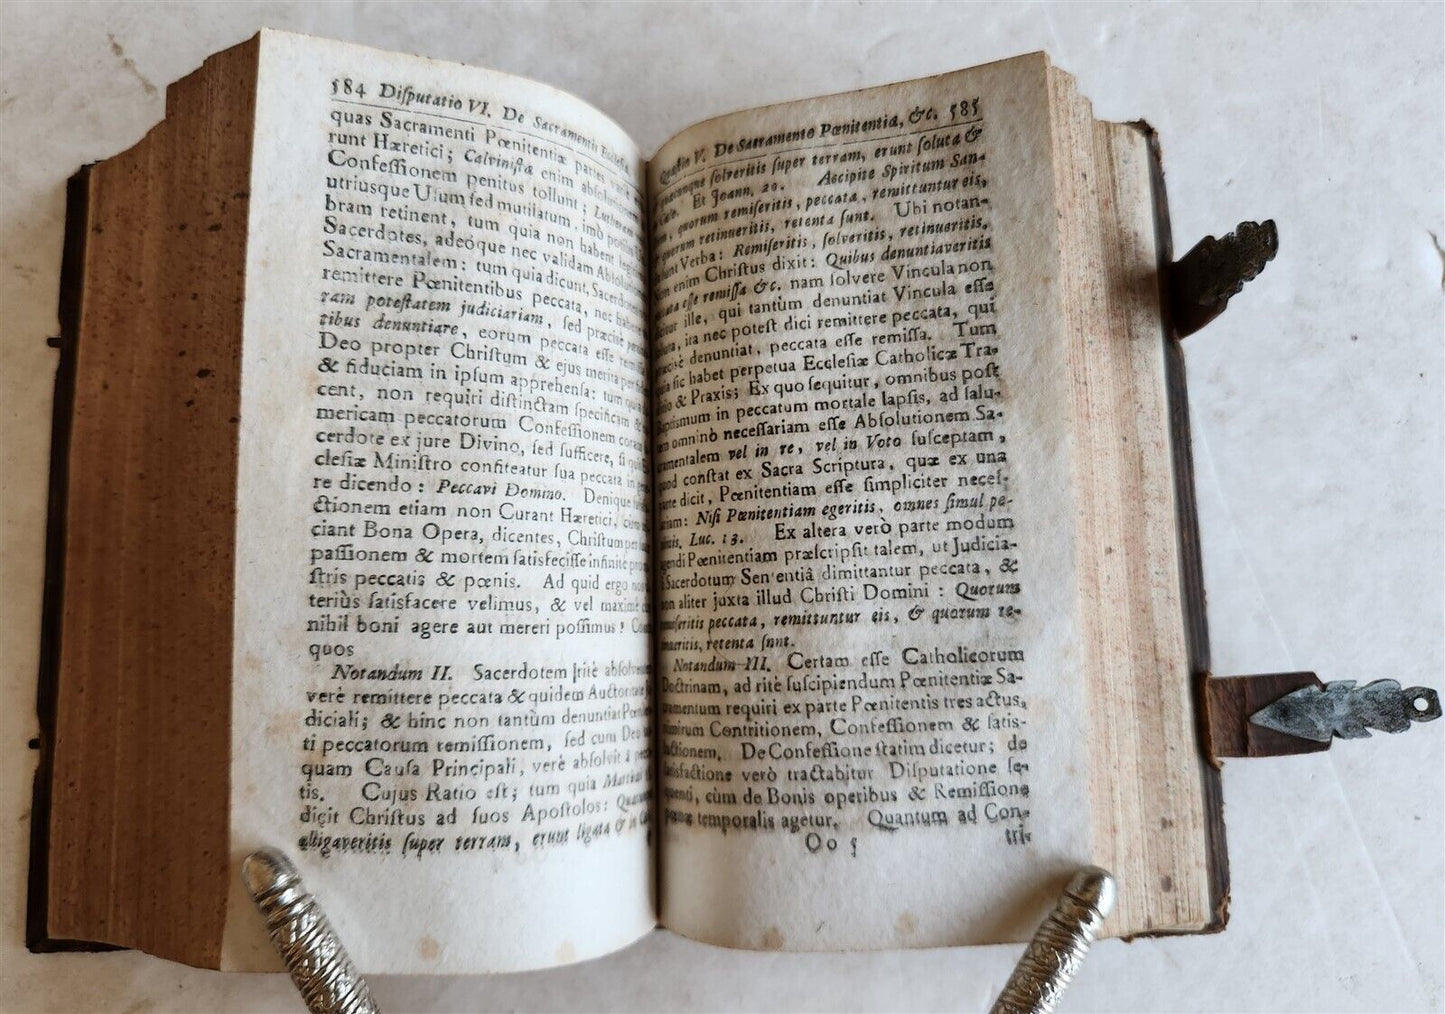 584 Diſputatio VI. De Sacramentis Eccleſiæ
quas Sacramenti Pœnitentiæ partes
runt Hæretici; Calviniſtæ enim abſolutionem
Confeſſionem penitus tollunt; Lutherani
utriusque Uſum ſed mutilatum, imò potiùs
bram retinent, tum quia non habent legitimos
Sacerdotes, adeóque nec validam Abſolutionem
Sacramentalem: tum quia dicunt, Sacerdotem
remittere Pœnitentibus peccata, nec habere
ram poteſtatem judiciariam, ſed præcisè
tibus denuntiare, eorum peccata eſſe remiſſa
Deo propter Chriſtum & ejus merita per
& fiduciam in ipſum apprehenſa: tum quia
cent, non requiri diſtinctam ſpecificam &
mericam peccatorum Confeſſionem coram
cerdote ex jure Divino, ſed ſufficere, ſi quis
cleſiæ Miniſtro confiteatur ſua peccata in
re dicendo: Peccavi Domino. Denique
ctionem etiam non Curant Hæretici,
ciant Bona Opera, dicentes, Chriſtum per
paſſionem & mortem ſatisfeciſſe infinitè pro
ſtris peccatis & pœnis. Ad quid ergo nos
teriùs ſatisfacere velimus, & vel maximè
nihil boni agere aut mereri poſſimus?
quos
Notandum II. Sacerdotem ritè abſolventem
verè remittere peccata & quidem Auctoritate
diciali; & hinc non tantùm denuntiat
ti peccatorum remiſſionem, ſed cum Deo
quam Cauſa Principali, verè abſolvit à
tis. Cujus Ratio eſt; tum quia Matthæi
dicit Chriſtus ad ſuos Apoſtolos:
alligaveritis ſuper terram, erunt ligata & in
Quæſtio V. De Sacramento Pœnitentiæ, &c. 585
quæcunque ſolveritis ſuper terram, erunt ſoluta &
Cælo. Et Joann. 20. Accipite Spiritum San-
quorum remiſeritis, peccata, remittuntur eis,
quorum retinueritis, retenta ſunt. Ubi notan-
ſunt Verba: Remiſeritis, ſolveritis, retinueritis.
Non enim Chriſtus dixit: Quibus denuntiaveritis
peccata eſſe remiſſa &c. nam ſolvere Vincula non
dicitur ille, qui tantùm denuntiat Vincula eſſe
ſoluta, ita nec poteſt dici remittere peccata, qui
præcisè denuntiat, peccata eſſe remiſſa. Tum
quia ſic habet perpetua Eccleſiæ Catholicæ Tra-
ditio & Praxis; Ex quo ſequitur, omnibus poſt
Baptiſmum in peccatum mortale lapſis, ad ſalu-
tem omninò neceſſariam eſſe Abſolutionem Sa-
cramentalem vel in re, vel in Voto ſuſceptam,
quod conſtat ex Sacra Scriptura, quæ ex una
parte dicit, Pœnitentiam eſſe ſimpliciter neceſ-
ſariam: Niſi Pœnitentiam egeritis, omnes ſimul pe-
ribitis. Luc. 13. Ex altera verò parte modum
agendi Pœnitentiam præſcripſit talem, ut Judicia-
li Sacerdotum Sententiâ dimittantur peccata, &
non aliter juxta illud Chriſti Domini: Quorum
remiſeritis peccata, remittuntur eis, & quorum re-
tinueritis, retenta ſunt.
Notandum III. Certam eſſe Catholicorum
Doctrinam, ad ritè ſuſcipiendum Pœnitentiæ Sa-
cramentum requiri ex parte Pœnitentis tres actus,
nimirum Contritionem, Confeſſionem & ſatis-
factionem. De Confeſſione ſtatim dicetur; de
ſatisfactione verò tractabitur Diſputatione ſe-
quenti, cùm de Bonis operibus & Remiſſione
pœnæ temporalis agetur. Quantum ad Con-
Oo 5 tri-